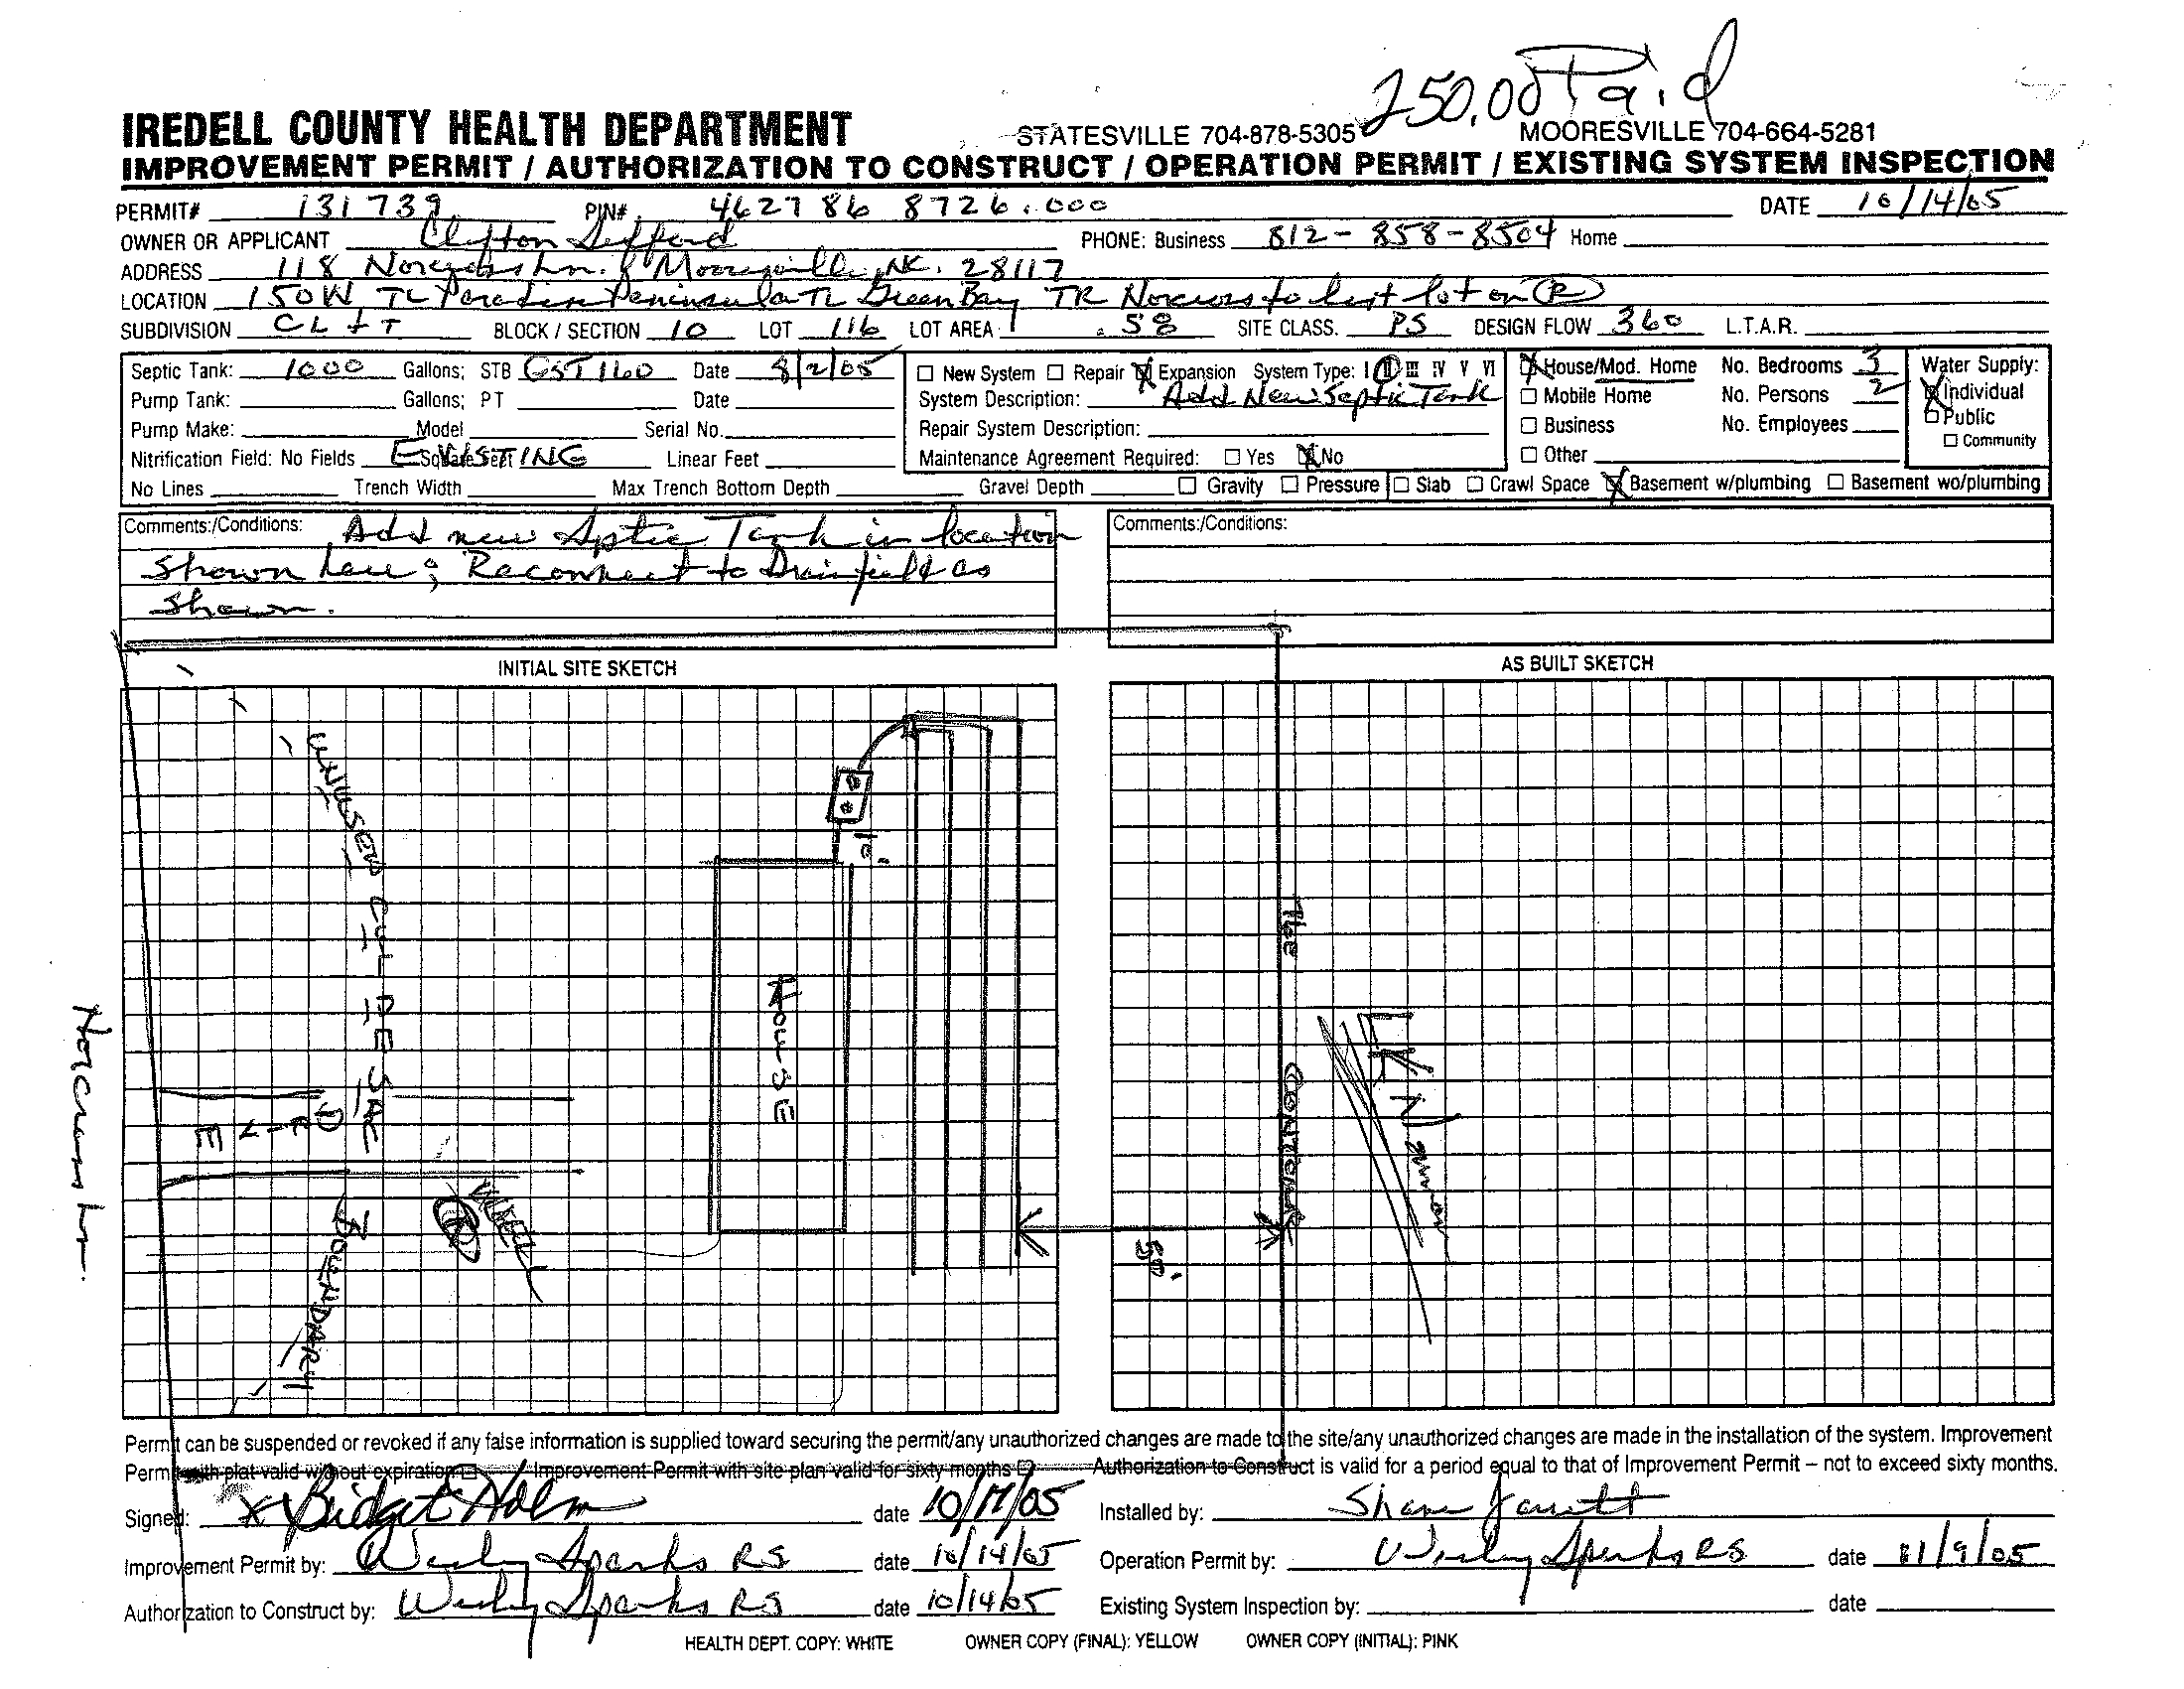 250.00 Paid
IREDELL COUNTY HEALTH DEPARTMENT STATESVILLE 704-878-5305 MOORESVILLE 704-664-5281
IMPROVEMENT PERMIT / AUTHORIZATION TO CONSTRUCT / OPERATION PERMIT / EXISTING SYSTEM INSPECTION
PERMIT# 131739 PIN# 462786 8726.000 DATE 10/14/05
OWNER OR APPLICANT Clifton PHONE: Business 812-858-8504 Home
ADDRESS 118 Norcross Ln. Mooresville, NC. 28117
LOCATION 150W TL Paradise Peninsula TL Green Bay TR Norcross to last lot on R
SUBDIVISION CL + T BLOCK / SECTION 10 LOT 116 LOT AREA .58 SITE CLASS. PS DESIGN FLOW 360 L.T.A.R.
Septic Tank: 1000 Gallons; STB GST 160 Date 8/2/05
Pump Tank: Gallons; PT Date
Pump Make: Model Serial No.
Nitrification Field: No Fields EXISTING Square Feet Linear Feet
No Lines Trench Width Max Trench Bottom Depth Gravel Depth ☐ Gravity ☐ Pressure
☐ New System ☐ Repair ☒ Expansion System Type: I II III IV V VI
System Description: Add New Septic Tank
Repair System Description:
Maintenance Agreement Required: ☐ Yes ☒ No
☒ House/Mod. Home No. Bedrooms 3
☐ Mobile Home No. Persons 2
☐ Business No. Employees
☐ Other
Water Supply:
☒ Individual
☐ Public
☐ Community
☐ Slab ☐ Crawl Space ☒ Basement w/plumbing ☐ Basement wo/plumbing
Comments:/Conditions: Add new Septic Tank in location
shown here; Reconnect to Drainfield as
shown.
Comments:/Conditions:
INITIAL SITE SKETCH
AS BUILT SKETCH
UNUSED CUL DE SAC
BOUNDARY
DRIVE
WELL
HOUSE
10'
50'
760 CONTOUR
LKN
Norcross Ln.
Permit can be suspended or revoked if any false information is supplied toward securing the permit/any unauthorized changes are made to the site/any unauthorized changes are made in the installation of the system. Improvement
Permit with plat valid without expiration ☐ Improvement Permit with site plan valid for sixty months ☐ Authorization to Construct is valid for a period equal to that of Improvement Permit – not to exceed sixty months.
Signed: X Bridget Holm date 10/17/05 Installed by: Shane Jarrett
Improvement Permit by: Wesley Sparks RS date 10/14/05 Operation Permit by: Wesley Sparks RS date 11/9/05
Authorization to Construct by: Wesley Sparks RS date 10/14/05 Existing System Inspection by: date
HEALTH DEPT. COPY: WHITE OWNER COPY (FINAL): YELLOW OWNER COPY (INITIAL): PINK